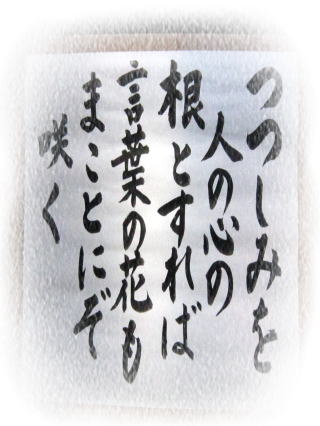 つつしみを
人の心の
根とすれば
言葉の花も
まことにぞ
咲く